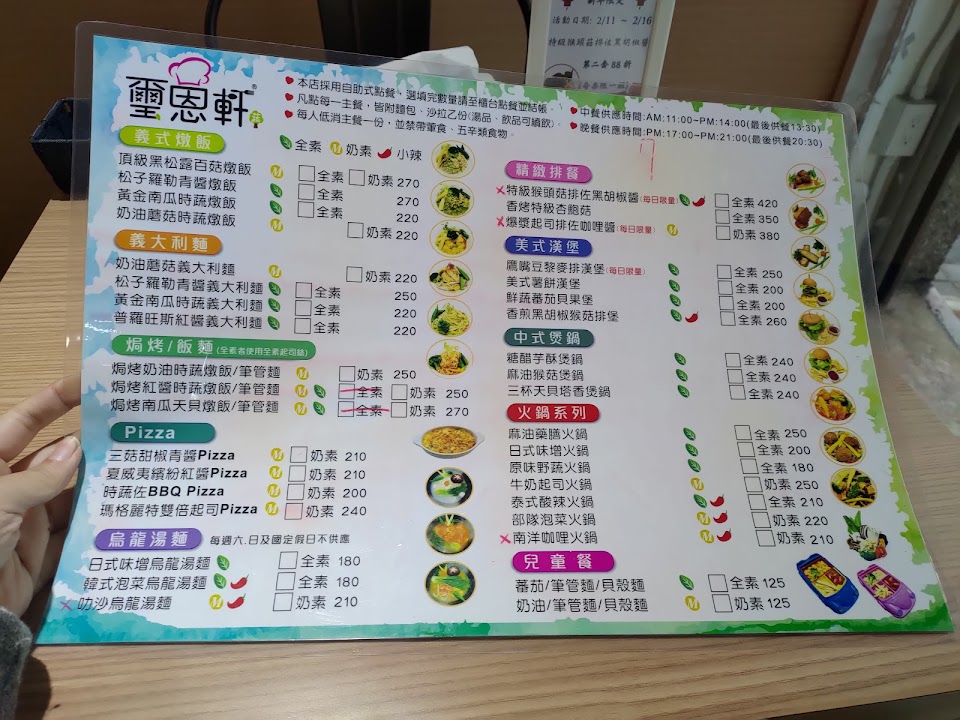 新年限定
活動日期: 2/11 ~ 2/16
特級猴頭菇排佐黑胡椒醬
第二套88折
璽恩軒
本店採用自助式點餐、選填完數量請至櫃台點餐並結帳。
凡點每一主餐，皆附麵包、沙拉乙份(湯品、飲品可續飲)。
每人低消主餐一份，並禁帶葷食、五辛類食物。
中餐供應時間:AM:11:00~PM:14:00(最後供餐13:30)
晚餐供應時間:PM:17:00~PM:21:00(最後供餐20:30)
全素 M 奶素 小辣
義式燉飯
頂級黑松露百菇燉飯 M 全素 奶素 270
松子羅勒青醬燉飯 全素 270
黃金南瓜時蔬燉飯 全素 220
奶油蘑菇時蔬燉飯 M 奶素 220
義大利麵
奶油蘑菇義大利麵 M 奶素 220
松子羅勒青醬義大利麵 全素 250
黃金南瓜時蔬義大利麵 全素 220
普羅旺斯紅醬義大利麵 全素 220
焗烤/飯麵 (全素者使用全素起司絲)
焗烤奶油時蔬燉飯/筆管麵 M 奶素 250
焗烤紅醬時蔬燉飯/筆管麵 M 全素 奶素 250
焗烤南瓜天貝燉飯/筆管麵 M 全素 奶素 270
Pizza
三菇甜椒青醬Pizza M 奶素 210
夏威夷繽紛紅醬Pizza M 奶素 210
時蔬佐BBQ Pizza M 奶素 200
瑪格麗特雙倍起司Pizza M 奶素 240
烏龍湯麵 每週六.日及國定假日不供應
日式味增烏龍湯麵 全素 180
韓式泡菜烏龍湯麵 全素 180
叻沙烏龍湯麵 M 奶素 210
精緻排餐
特級猴頭菇排佐黑胡椒醬(每日限量) 全素 420
香烤特級杏鮑菇 全素 350
爆漿起司排佐咖哩醬(每日限量) M 奶素 380
美式漢堡
鷹嘴豆藜麥排漢堡(每日限量) 全素 250
美式薯餅漢堡 全素 200
鮮蔬蕃茄貝果堡 全素 200
香煎黑胡椒猴菇排堡 全素 260
中式煲鍋
糖醋芋酥煲鍋 全素 240
麻油猴菇煲鍋 全素 240
三杯天貝塔香煲鍋 全素 240
火鍋系列
麻油藥膳火鍋 全素 250
日式味增火鍋 全素 200
原味野蔬火鍋 全素 180
牛奶起司火鍋 M 奶素 250
泰式酸辣火鍋 全素 210
部隊泡菜火鍋 M 奶素 220
南洋咖哩火鍋 M 奶素 210
兒童餐
蕃茄/筆管麵/貝殼麵 全素 125
奶油/筆管麵/貝殼麵 M 奶素 125